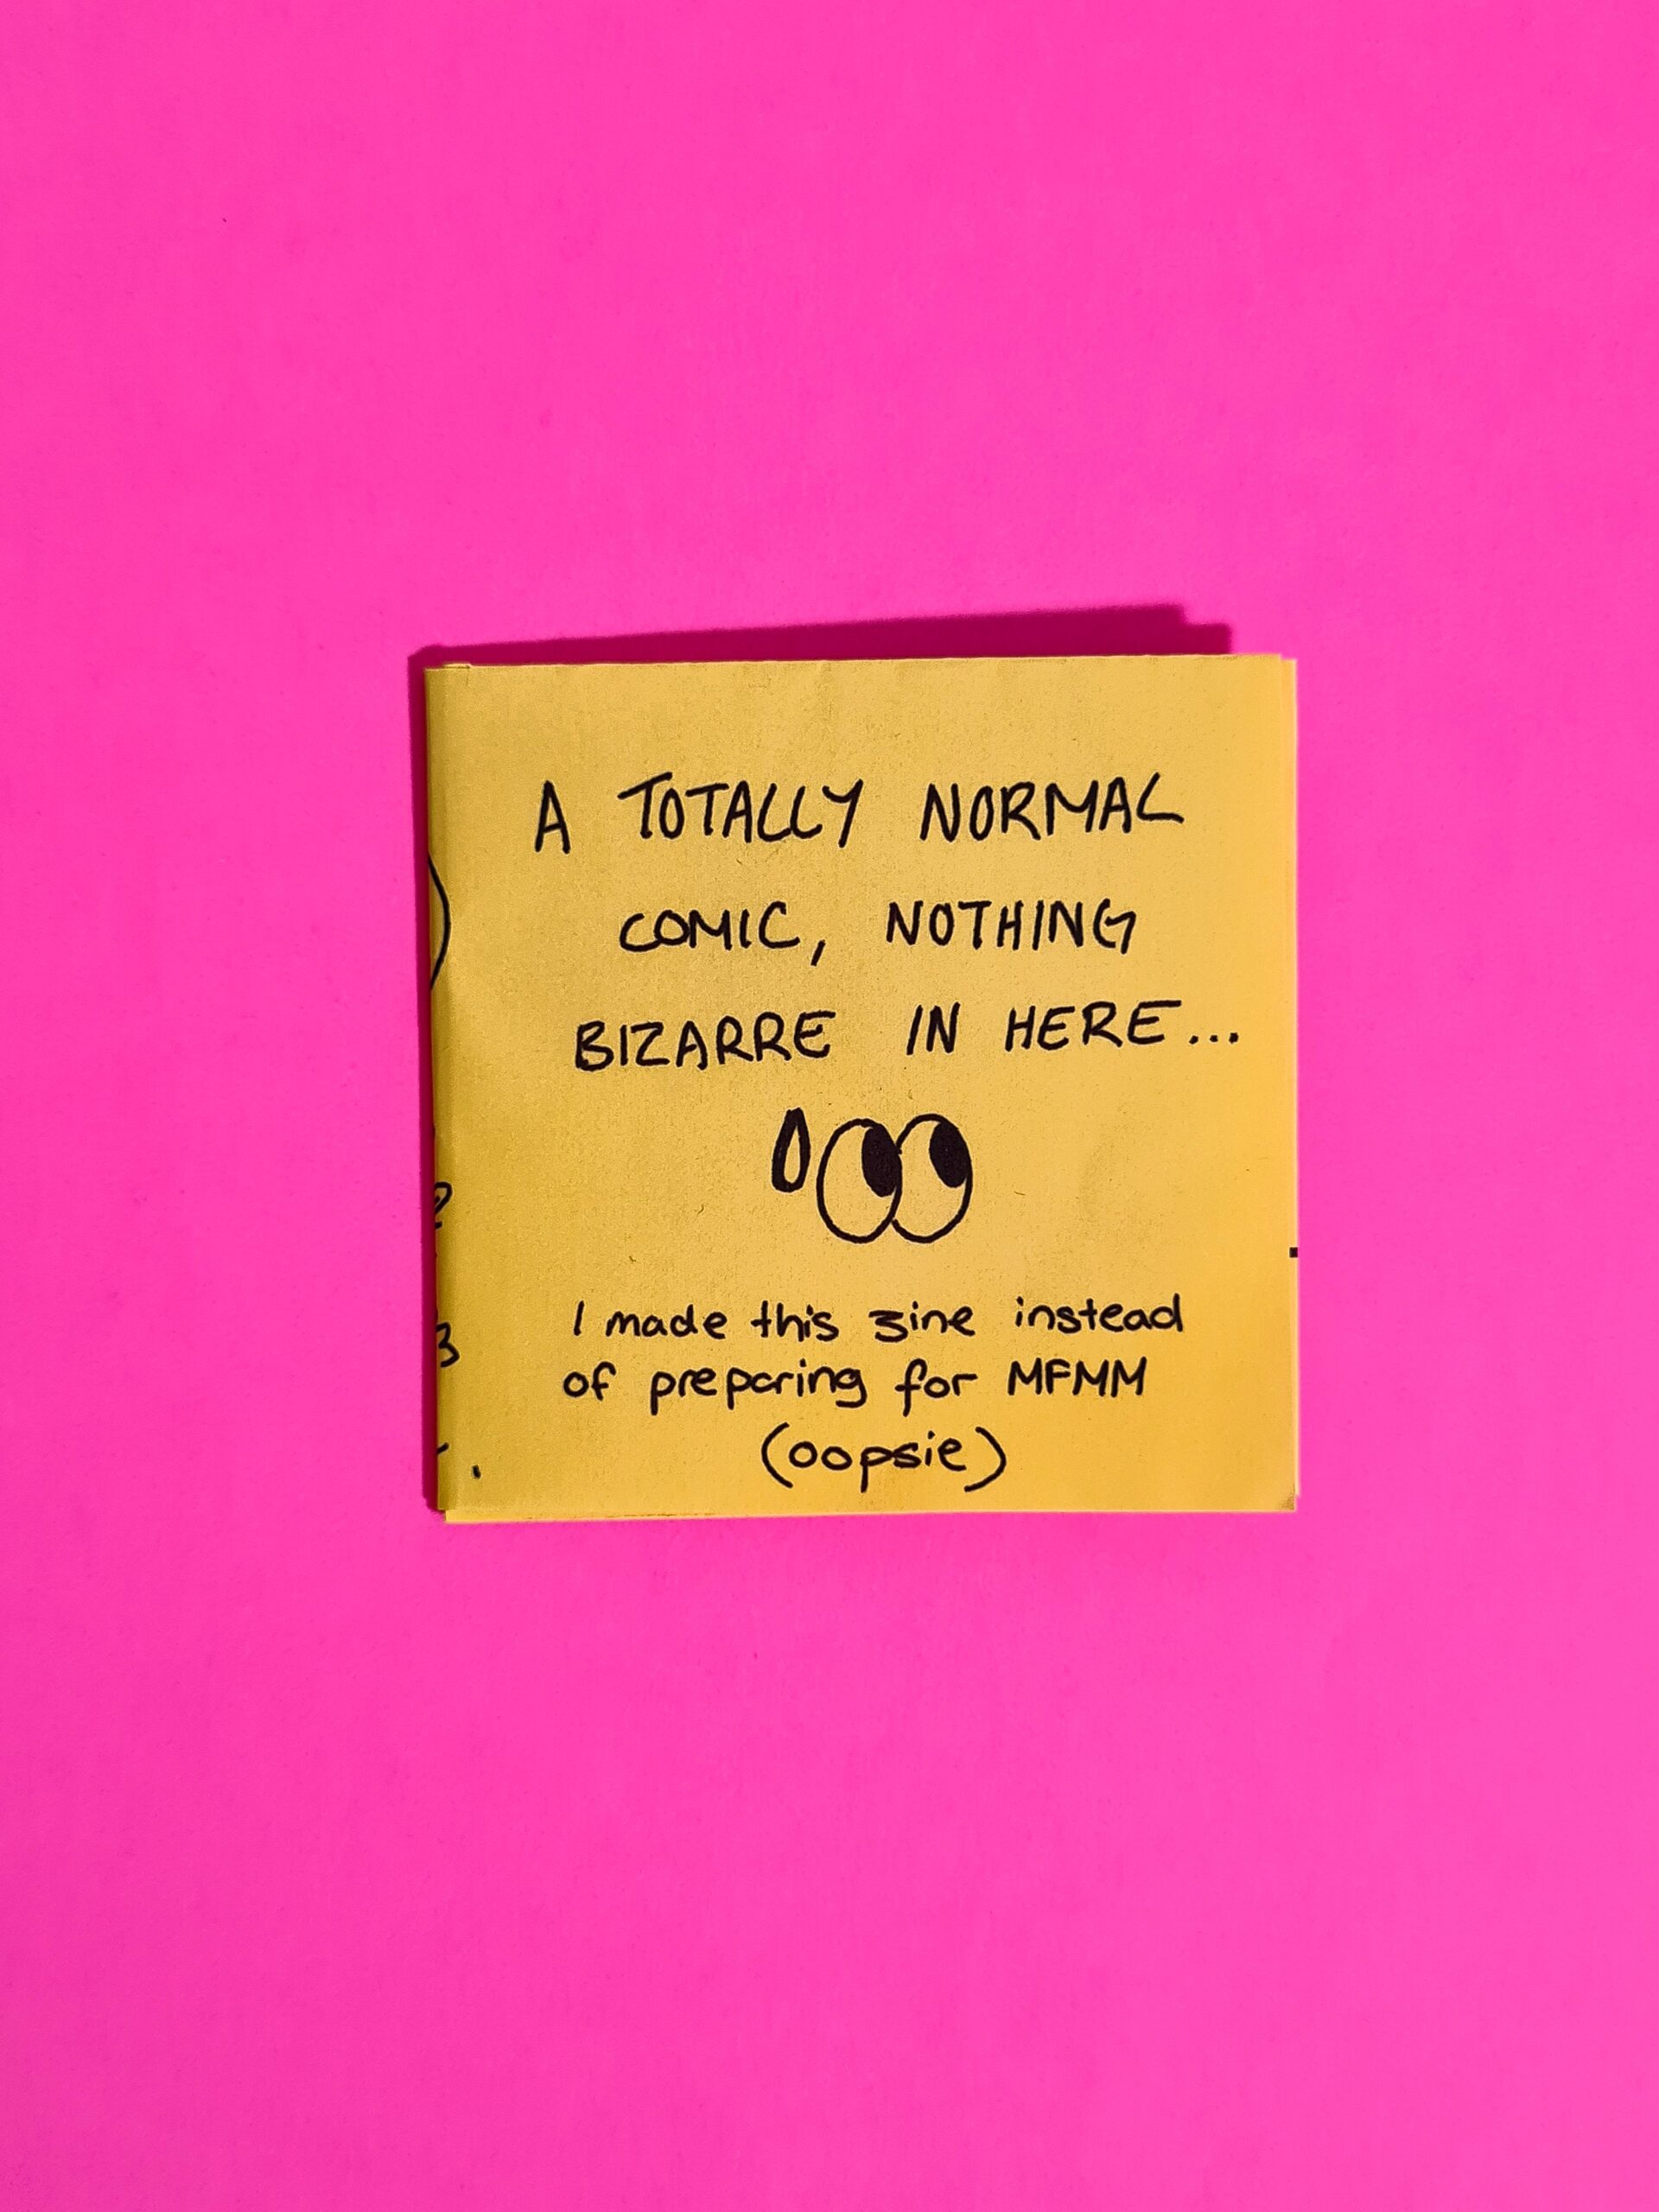 A TOTALLY NORMAL
COMIC, NOTHING
BIZARRE IN HERE...
I made this zine instead
of preparing for MFMM
(oopsie)